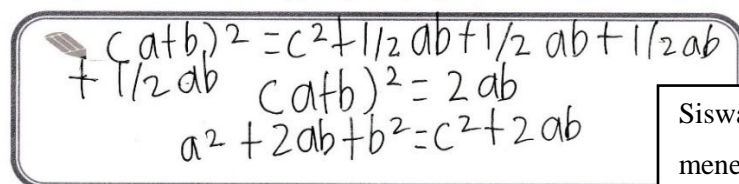 (a+b)2 = c2+1/2 ab+1/2 ab+1/2ab
+ 1/2 ab (a+b)2 = 2 ab
a2 + 2ab+b2=c2+2ab
Siswa
mene